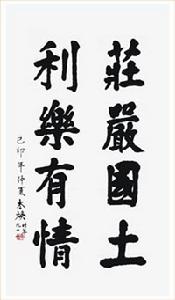 莊嚴國土
利樂有情
己卯年仲夏